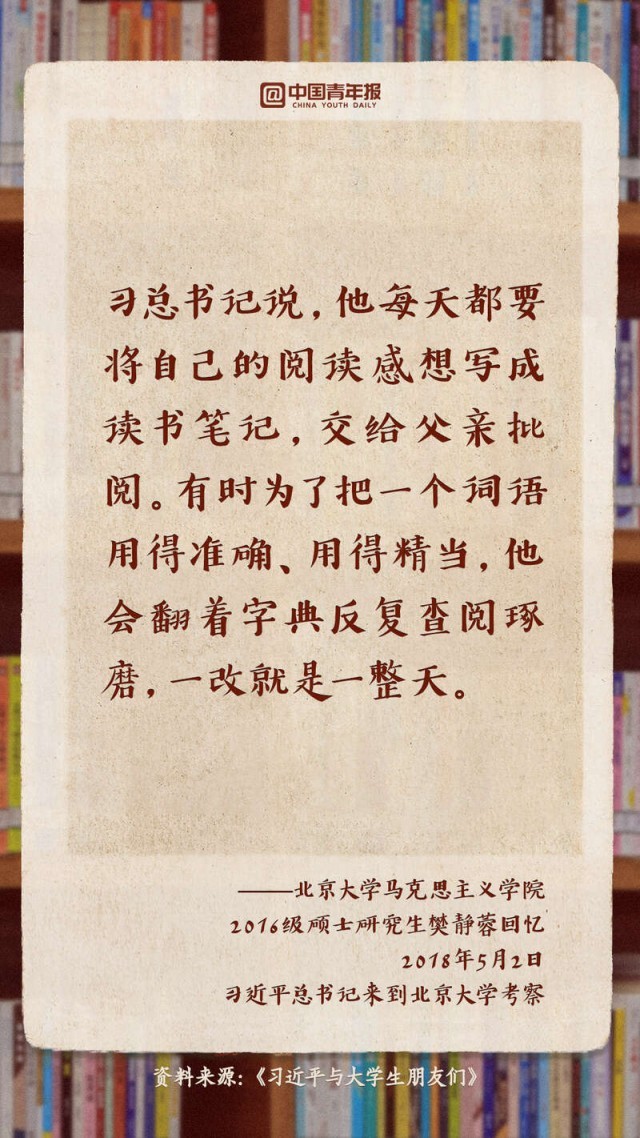 @中国青年报
CHINA YOUTH DAILY
习总书记说，他每天都要
将自己的阅读感想写成
读书笔记，交给父亲批
阅。有时为了把一个词语
用得准确、用得精当，他
会翻着字典反复查阅琢
磨，一改就是一整天。
——北京大学马克思主义学院
2016级硕士研究生樊静蓉回忆
2018年5月2日
习近平总书记来到北京大学考察
资料来源：《习近平与大学生朋友们》